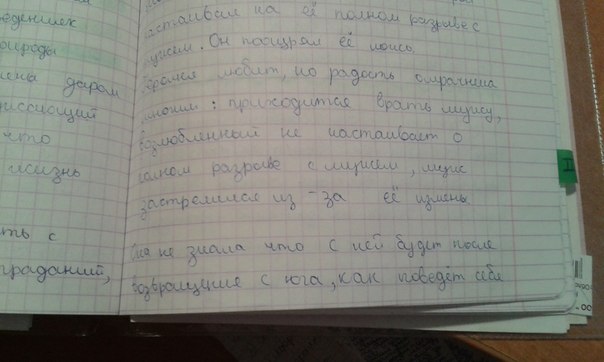 ведениек
природы
даром
что
жизнь
ть с
граданий,
настаивал на её полном разрыве с
мужем. Он поощрял её
любит, но радость омрачила
: приходится врать мужу,
возлюбленный не настаивает о
полном разрыве с мужем, муж
застрелился из-за её измены
Она не знала что с ней будет после
возвращение с юга, как поведёт себя
II